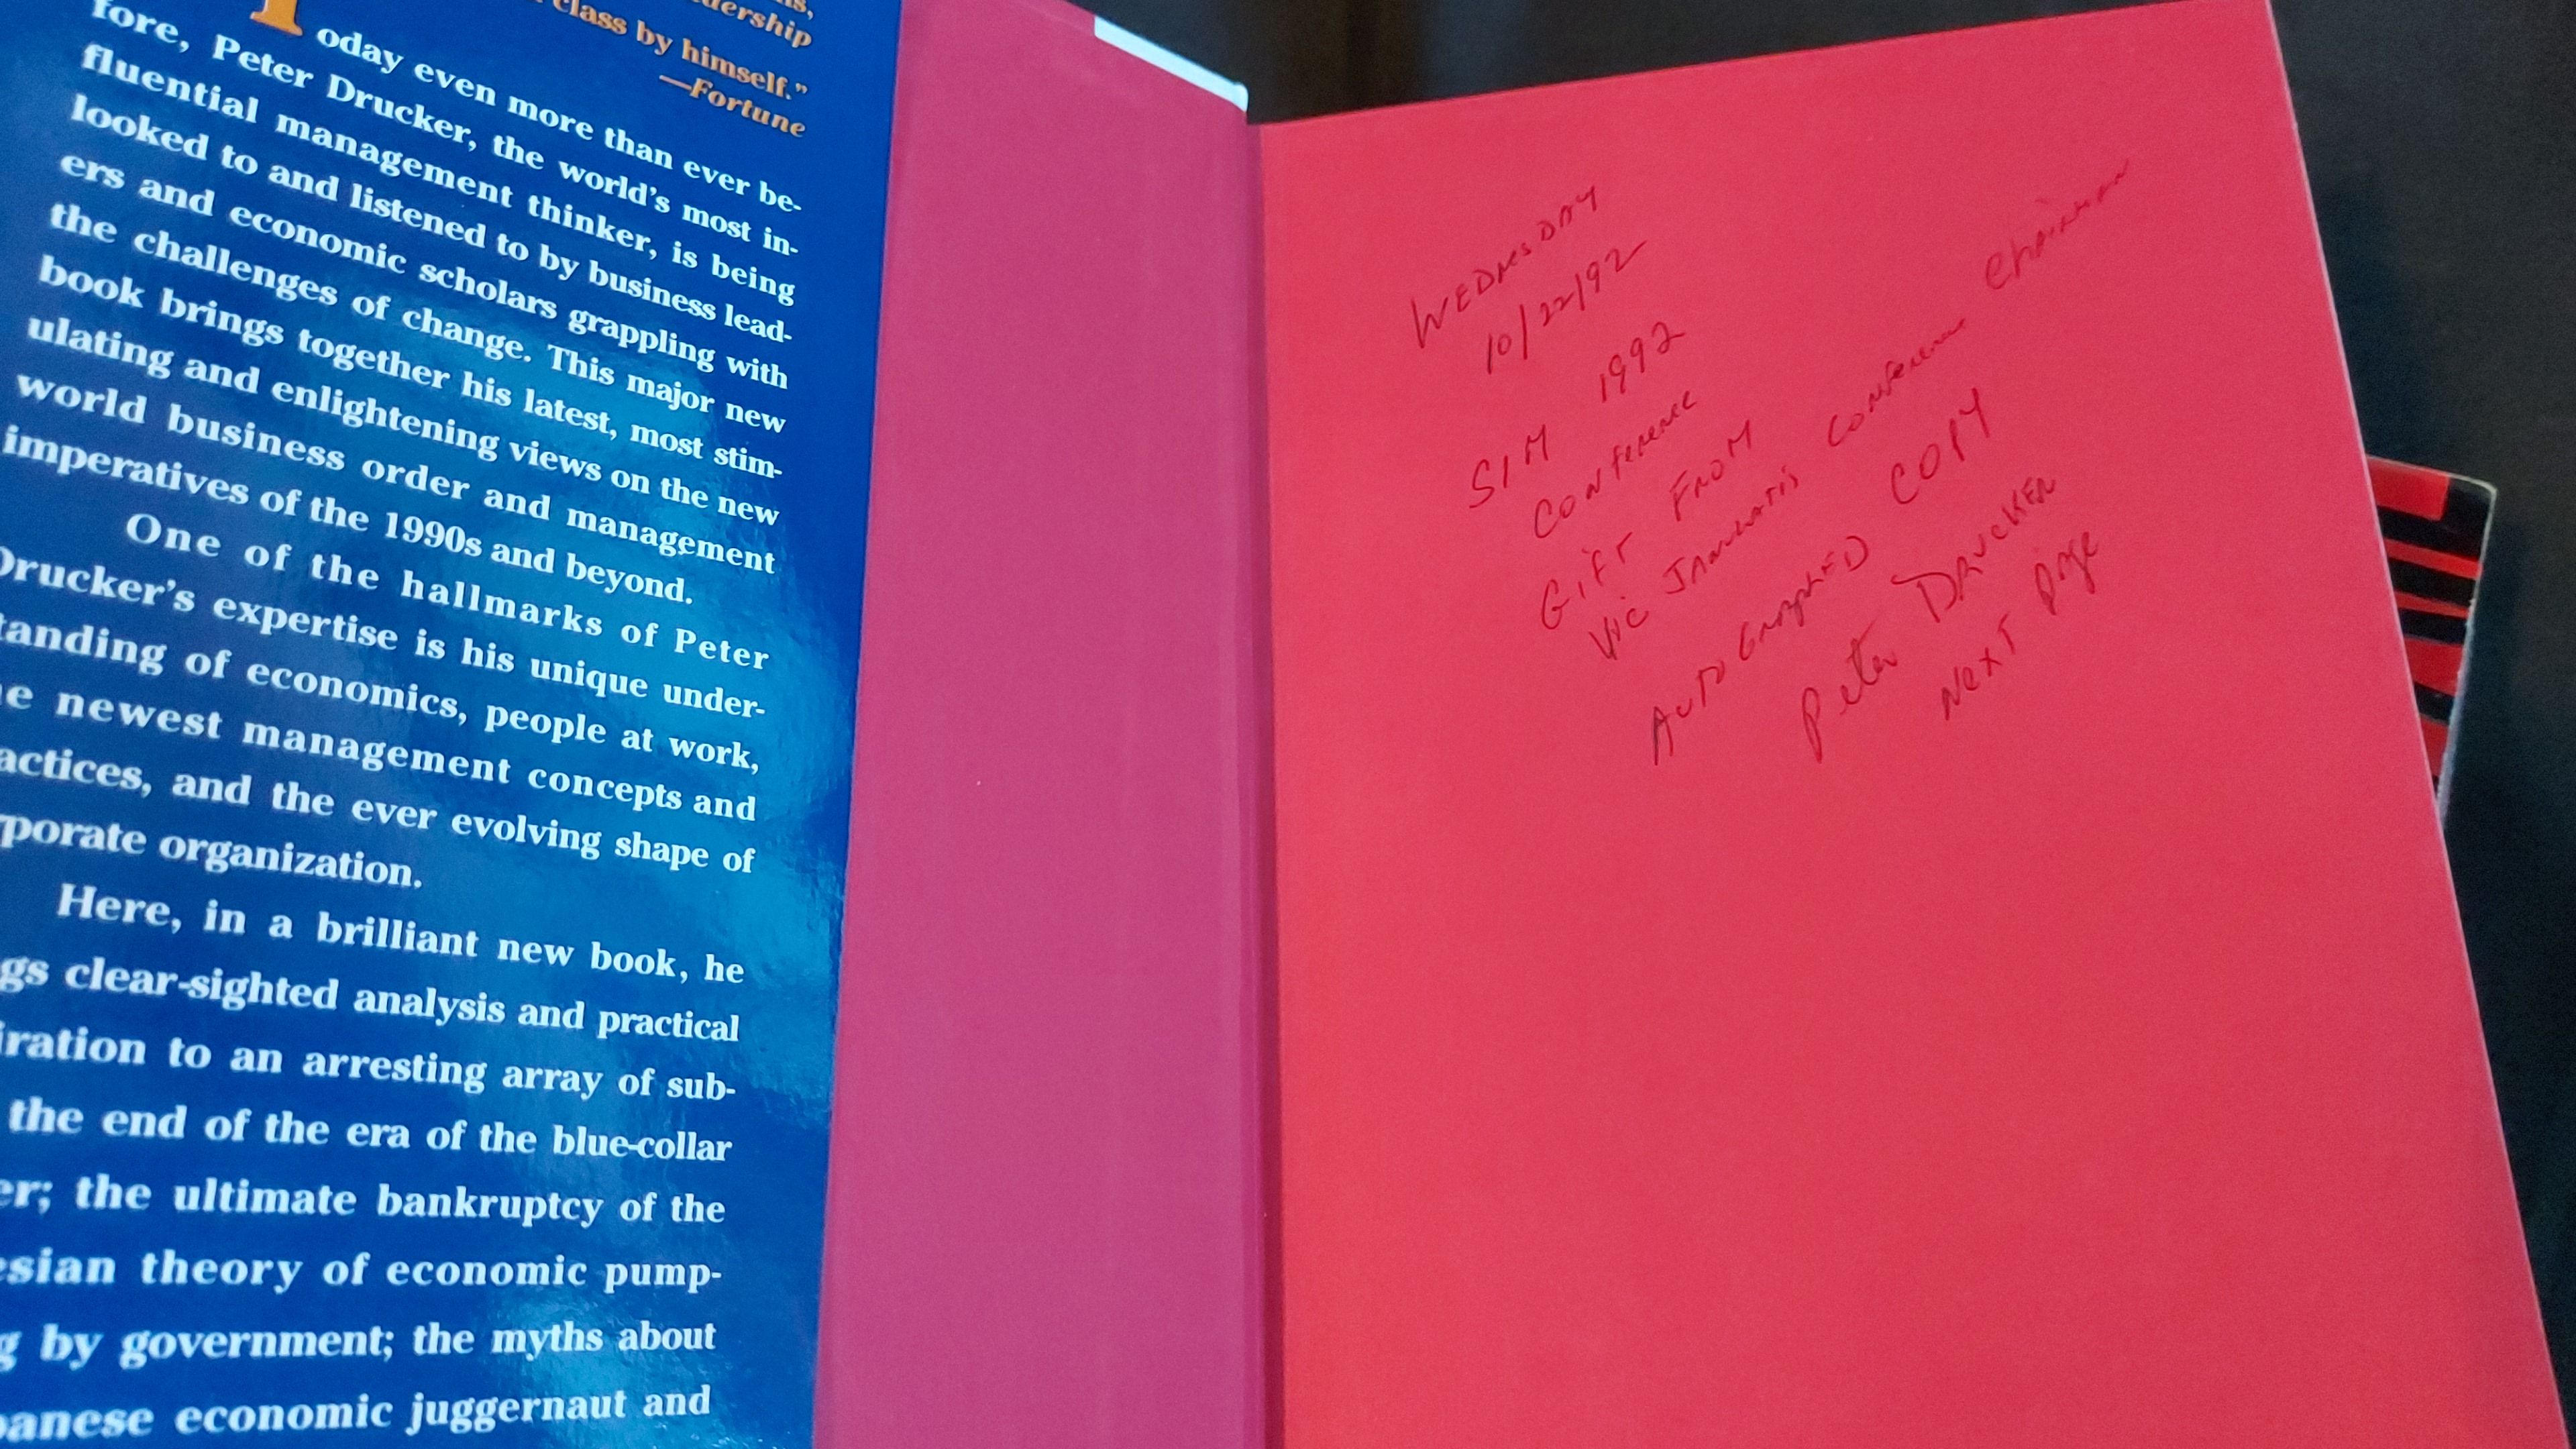 ns,
dership
class by himself."
—Fortune
Today even more than ever be-
fore, Peter Drucker, the world's most in-
fluential management thinker, is being
looked to and listened to by business lead-
ers and economic scholars grappling with
the challenges of change. This major new
book brings together his latest, most stim-
ulating and enlightening views on the new
world business order and management
imperatives of the 1990s and beyond.
One of the hallmarks of Peter
Drucker's expertise is his unique under-
tanding of economics, people at work,
e newest management concepts and
actices, and the ever evolving shape of
rporate organization.
Here, in a brilliant new book, he
gs clear-sighted analysis and practical
iration to an arresting array of sub-
the end of the era of the blue-collar
er; the ultimate bankruptcy of the
esian theory of economic pump-
g by government; the myths about
panese economic juggernaut and
WEDNESDAY
10/22/92
SIM 1992
Conference
Gift From
Vic Conference Chairman
AUTOGRAPHED COPY
Peter DRUCKER
Next Page